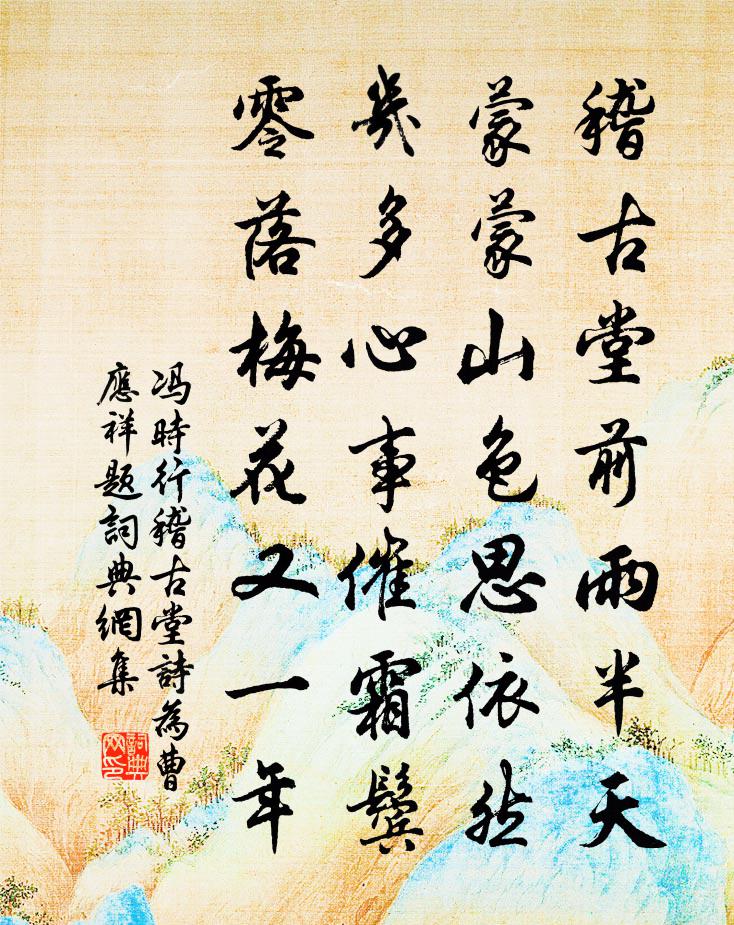 稽古堂前雨半天
蒙蒙山色思依然
幾多心事催霜鬓
零落梅花又一年
冯時行稽古堂詩為曹
應祥題詞典網集
詞典
网印